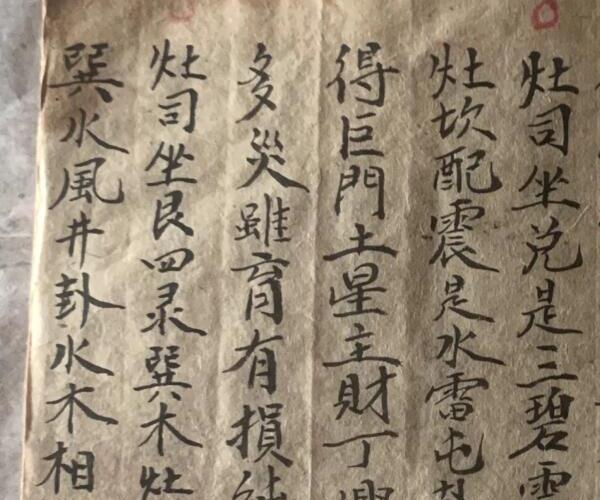 灶司坐兑是三碧震
灶坎配震是水雷屯卦
得巨門土星主財丁興
多災雖育有損純
灶司坐艮四录巽木灶
巽水風井卦水木相